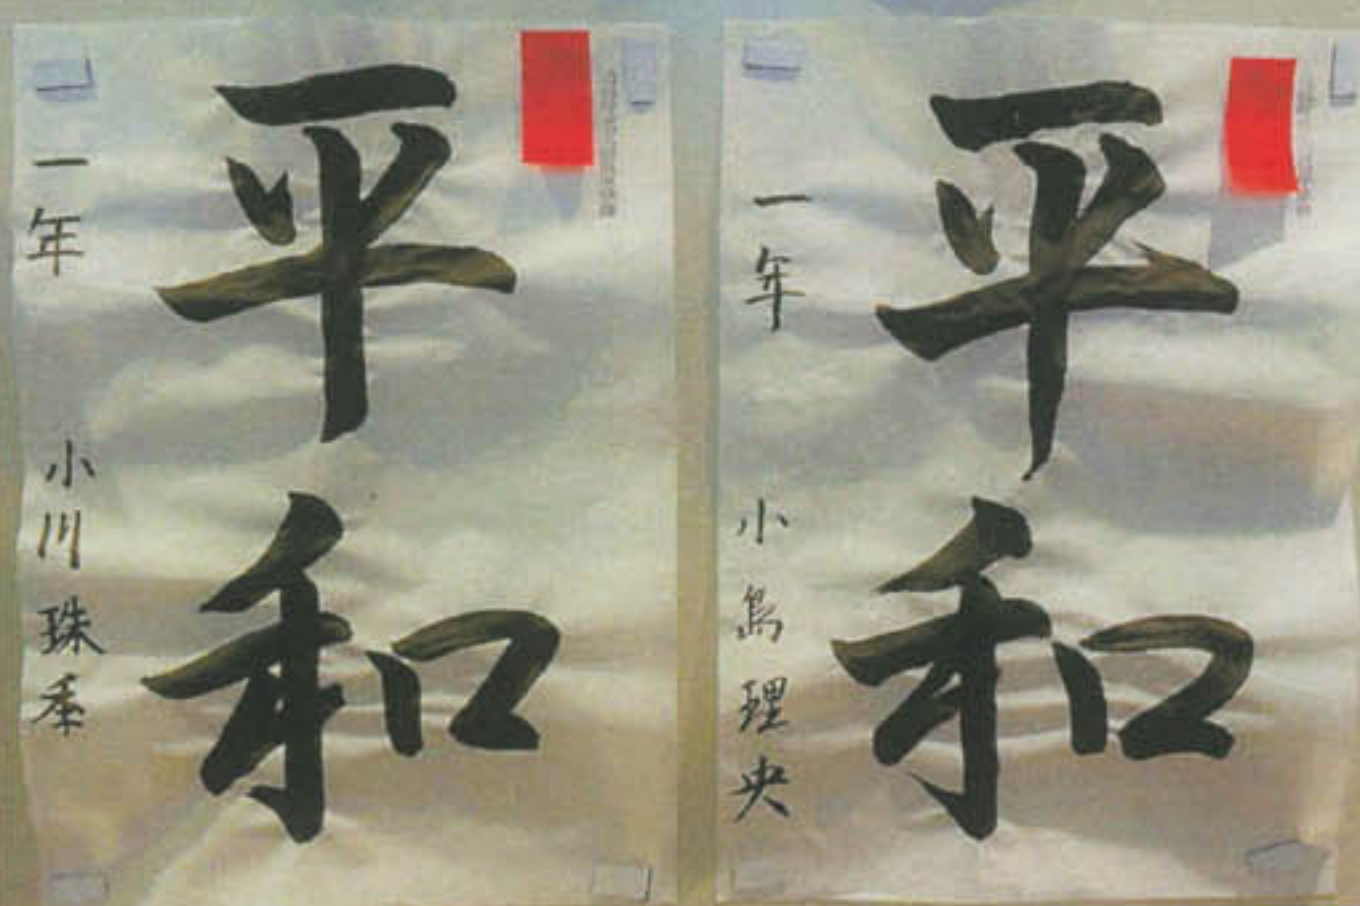 平和
一年 小川珠
平和
一年 小島理央